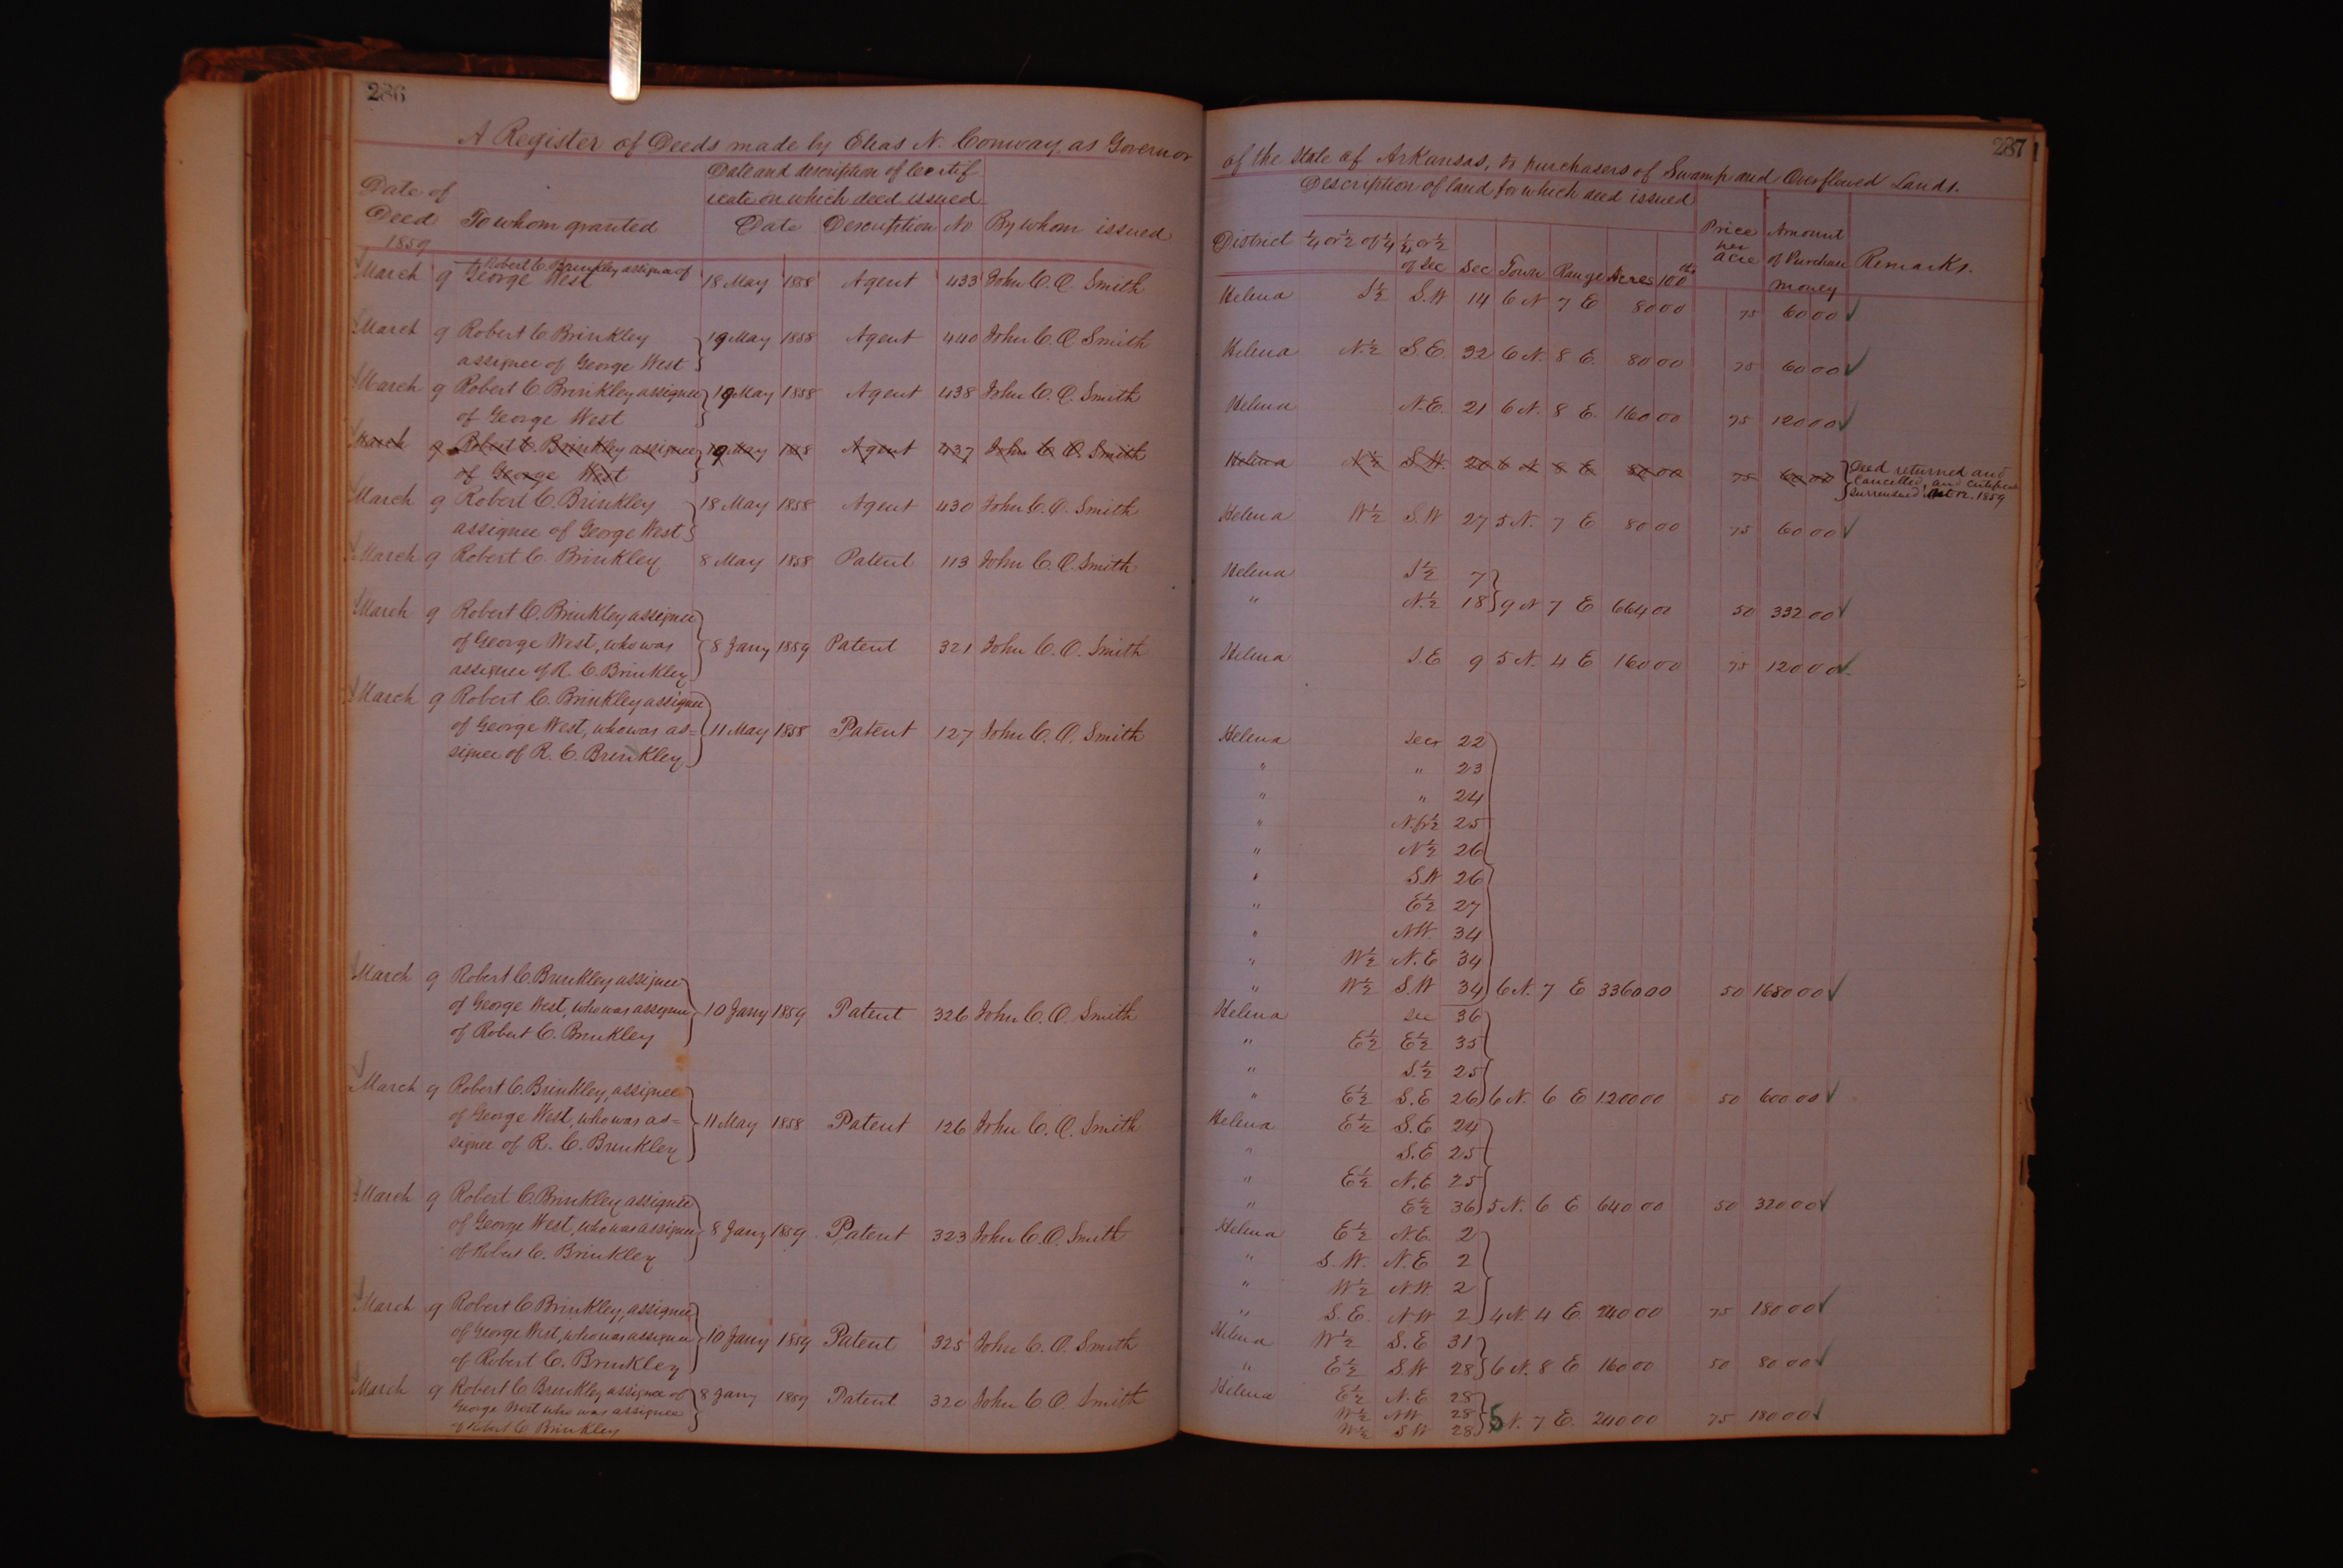 286
A Register of Deeds made by Elias N. Conway, as Governor
Date of Deed 1859 To whom granted Date and description of Certificate on which deed issued Date Description No By whom issued
March 9 Robert C. Brinkley assignee of
George West 18 May 1858 Agent 433 John C. O. Smith
March 9 Robert C. Brinkley 19 May 1858 Agent 440 John C. O. Smith
assignee of George West
March 9 Robert C. Brinkley assignee 19 May 1858 Agent 438 John C. O. Smith
of George West
March 9 Robert C. Brinkley assignee 19 May 1858 Agent 437 John C. O. Smith
of George West
March 9 Robert C. Brinkley 18 May 1858 Agent 430 John C. O. Smith
assignee of George West
March 9 Robert C. Brinkley 8 May 1858 Patent 113 John C. O. Smith
March 9 Robert C. Brinkley assignee
of George West, who was 8 Jany 1859 Patent 321 John C. O. Smith
assignee of R. C. Brinkley
March 9 Robert C. Brinkley assignee
of George West, who was as= 11 May 1858 Patent 127 John C. O. Smith
signee of R. C. Brinkley
March 9 Robert C. Brinkley assignee
of George West, who was assignee 10 Jany 1859 Patent 326 John C. O. Smith
of Robert C. Brinkley
March 9 Robert C. Brinkley, assignee
of George West, who was as= 11 May 1858 Patent 126 John C. O. Smith
signee of R. C. Brinkley
March 9 Robert C. Brinkley assignee
of George West, who was assignee 8 Jany 1859 Patent 323 John C. O. Smith
of Robert C. Brinkley
March 9 Robert C. Brinkley, assignee
of George West, who was assignee 10 Jany 1859 Patent 325 John C. O. Smith
of Robert C. Brinkley
March 9 Robert C. Brinkley assignee of 8 Jany 1859 Patent 320 John C. O. Smith
George West who was assignee
of Robert C. Brinkley
287
of the State of Arkansas, to purchasers of Swamp and Overflowed Lands.
Description of land for which deed issued
District ¼ or ½ of ¼ ¼ or ½ of Sec Sec Town Range Acres 100ths Price per acre Amount of Purchase money Remarks.
Helena S½ S.W 14 6 N 7 E 80 00 75 60 00
Helena N.½ S.E. 32 6 N. 8 E. 80 00 75 60 00
Helena N.E. 21 6 N. 8 E. 160 00 75 120 00
Helena N½ S.W. 20 6 N 8 E 80 00 75 60 00 Deed returned and
cancelled, and certificate
surrendered 1859
Helena W½ S.W 27 5 N. 7 E 80 00 75 60 00
Helena S½ 7
" N.½ 18 9 N 7 E 664 00 50 332 00
Helena S.E 9 5 N. 4 E 160 00 75 120 00
Helena Sec 22
" " 23
" " 24
" N.fr½ 25
" N½ 26
" S.W 26
" E½ 27
" N.W. 34
" W½ N.E 34
" W½ S.W 34 6 N. 7 E 3360 00 50 1680 00
Helena Sec 36
" E½ E½ 35
" S.½ 25
" E½ S.E 26 6 N. 6 E 1200 00 50 600 00
Helena E½ S.E 24
" S.E 25
" E½ N.E 25
" E½ 36 5 N. 6 E 640 00 50 320 00
Helena E½ N.E. 2
" S.W. N.E 2
" W½ N.W. 2
" S.E. N.W 2 4 N. 4 E 240 00 75 180 00
Helena W½ S.E 31
" E½ S.W 28 6 N. 8 E 160 00 50 80 00
Helena E½ N.E 28
W½ N.W 28 5 N. 7 E. 240 00 75 180 00
W½ S.W 28